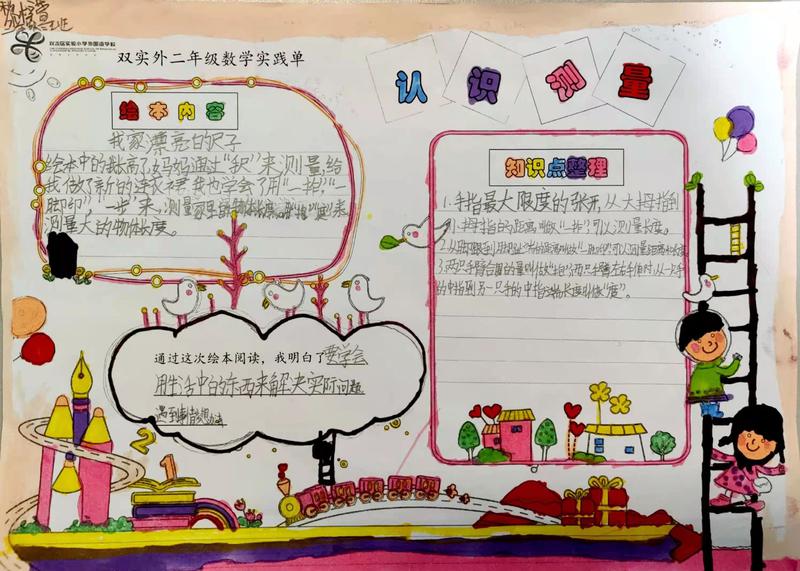 二年级
双流区实验小学外国语学校
双实外二年级数学实践单
认识测量
绘本内容
我家漂亮的尺子
绘本中的我长高了，妈妈通过“尺”来测量，给
我做了新的连衣裙，我也学会了用“一拃”，“一
脚印”，“一步”来，测量家里的物体长度，用“度”来
测量大的物体长度。
知识点整理
1.手指最大限度的张开，从大拇指到
小拇指的距离叫做“一拃”可以测量长度。
2.从脚跟到脚尖的距离叫做“一脚印”可以测量距离和长度
3.两只手臂合围的量叫做“抱”，两只手臂左右平伸时，从一只手
的中指到另一只手的中指的长度叫做“度”。
通过这次绘本阅读，我明白了要学会
用生活中的东西来解决实际问题
遇到事情想办法
2
1